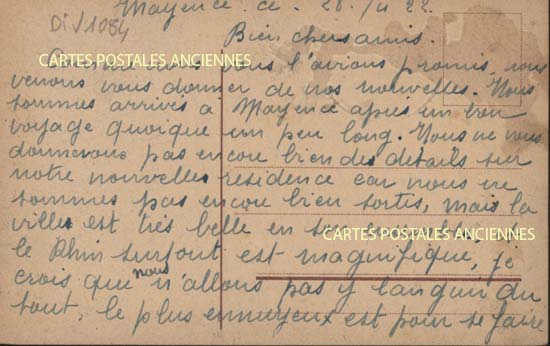 Mayence ce 28/4 22
Div1084
Bien chers amis.
CARTES POSTALES ANCIENNES
Comme nous vous l'avions promis, nous
venons vous donner de nos nouvelles. Nous
sommes arrivés à Mayence après un bon
voyage quoique un peu long. Nous ne vous
donnerons pas encore bien des détails sur
notre nouvelles résidence car nous ne
sommes pas encore bien sortis, mais la
villes est très belle en
CARTES POSTALES ANCIENNES
le Rhin surtout est magnifique, je
crois que nous n'allons pas y languir du
tout, le plus ennuyeux est pour se faire